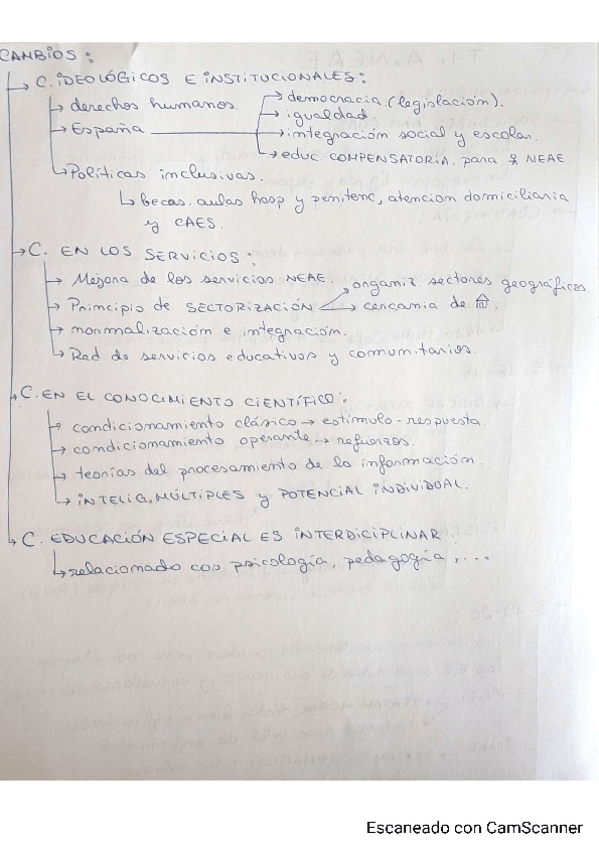 CAMBIOS:
C. IDEOLÓGICOS E INSTITUCIONALES:
derechos humanos.
democracia (legislación).
igualdad
España
integración social y escolar.
educ COMPENSATORIA. para NEAE.
Políticas inclusivas.
becas. aulas hosp y penitenc, atencion domiciliaria
y CAES.
C. EN LOS SERVICIOS:
Mejora de los servicios NEAE.
organiz sectores geográficos.
Principio de SECTORIZACIÓN
cercania de
normalización e integración.
Red de servicios educativos y comunitarios.
C. EN EL CONOCIMIENTO CIENTÍFICO:
condicionamiento clásico → estímulo - respuesta.
condicionamiento operante → refuerzos.
teorías del procesamiento de la información.
INTELIG. MÚLTIPLES y POTENCIAL INDIVIDUAL.
C. EDUCACIÓN ESPECIAL ES INTERDICIPLINAR.
relacionado con psicología, pedagogía, ...
Escaneado con CamScanner